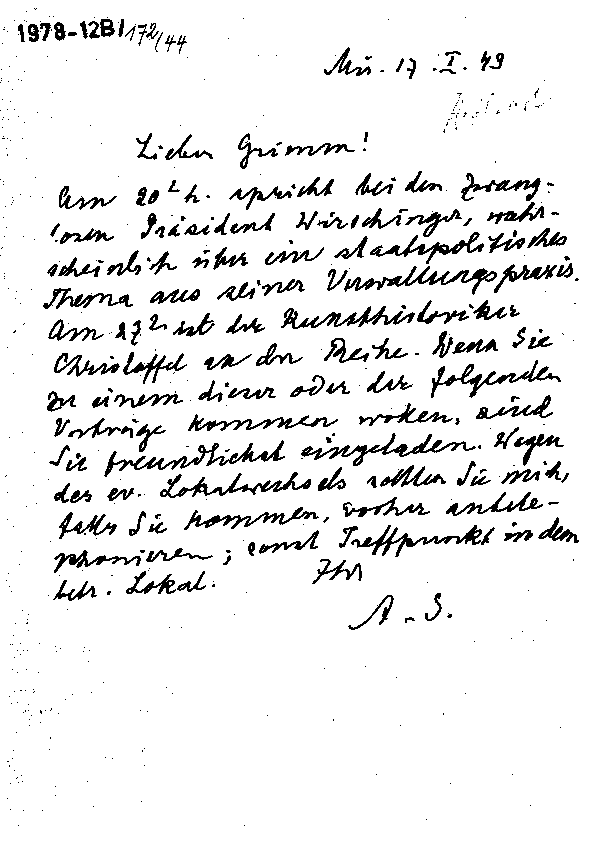 1978-12B/172/44
Mü. 17.I.49
Lieber Grimm!
Am 20t h. spricht bei den Zwang-
losen Präsident Wirschinger, wahr-
scheinlich über ein staatspolitisches
Thema aus seiner Verwaltungspraxis.
Am 27t ist der Kunsthistoriker
Christoffel an der Reihe. Wenn Sie
zu einem dieser oder der folgenden
Vorträge kommen wollen, sind
Sie freundlichst eingeladen. Wegen
des ev. Lokalwechsels sollten Sie mich,
falls Sie kommen, vorher antele-
phonieren; sonst Treffpunkt in dem
betr. Lokal.
Ihr
A. S.